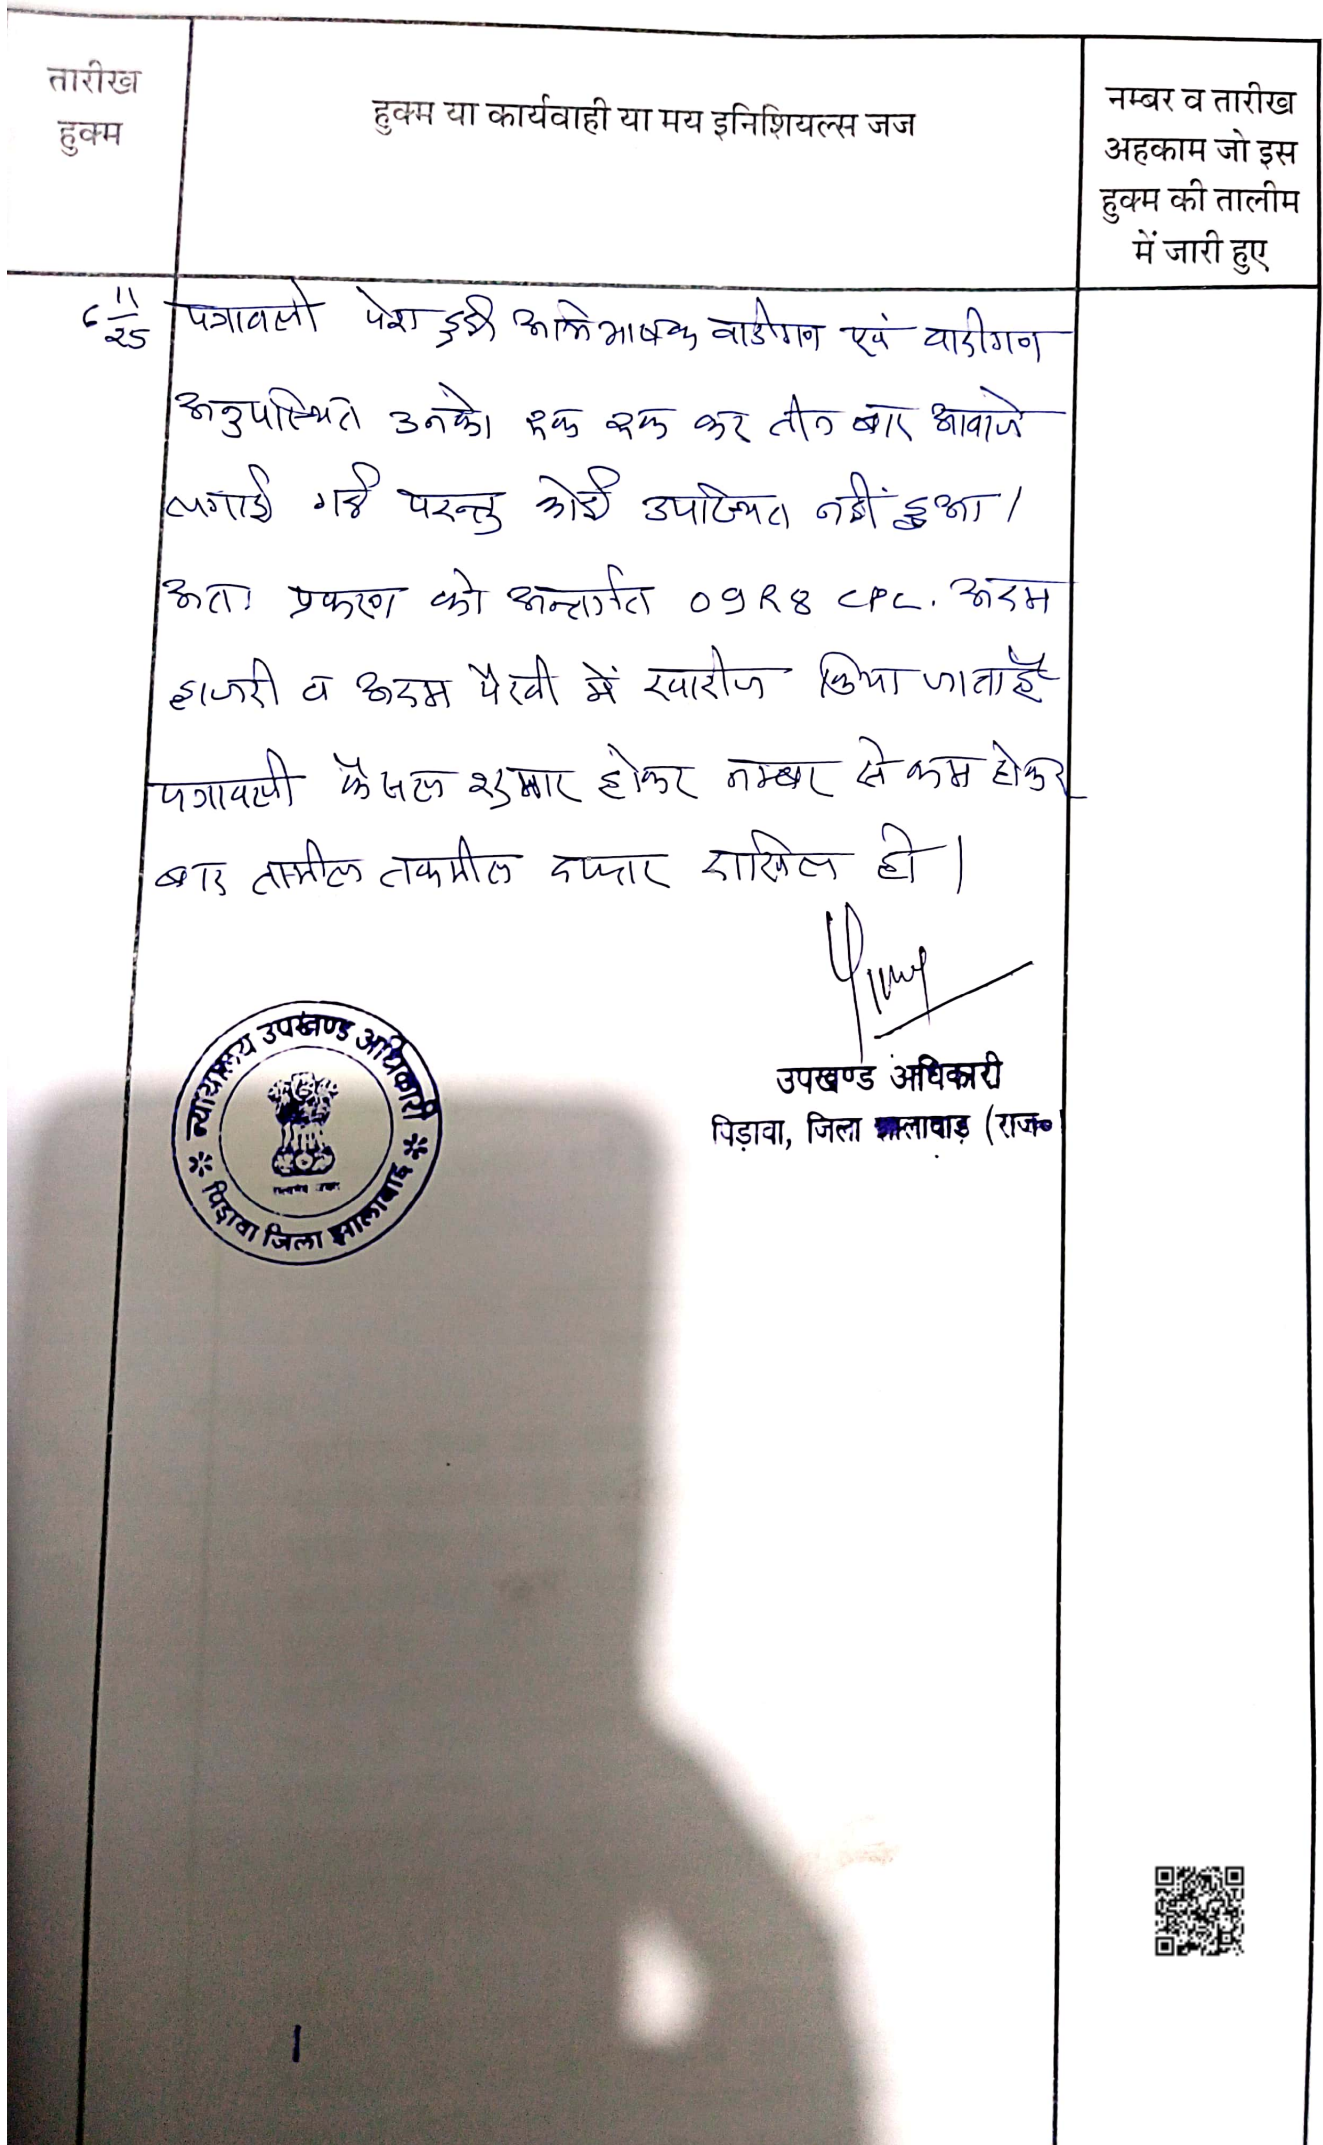 तारीख
हुक्म
हुक्म या कार्यवाही या मय इनिशियल्स जज
नम्बर व तारीख
अहकाम जो इस
हुक्म की तालीम
में जारी हुए
6 11/25 पत्रावली पेश हुई अभिभाषक वादीगन एवं वादीगन
अनुपस्थित उनको एक एक कर तीन बार आवाजे
लगाई गई परन्तु कोई उपस्थित नहीं हुआ।
अतः प्रकरण को अन्तर्गत O9R8 CPC. अदम
हाजरी व अदम पैरवी में खारीज किया जाता है
पत्रावली फैसल शुमार होकर नम्बर से कम होकर
बाद तामील तकमील दफ्तर दाखिल हो।
उपखण्ड अधिकारी
पिड़ावा, जिला झालावाड़ (राज०)
न्यायालय उपखण्ड अधिकारी
पिड़ावा जिला झालावाड़